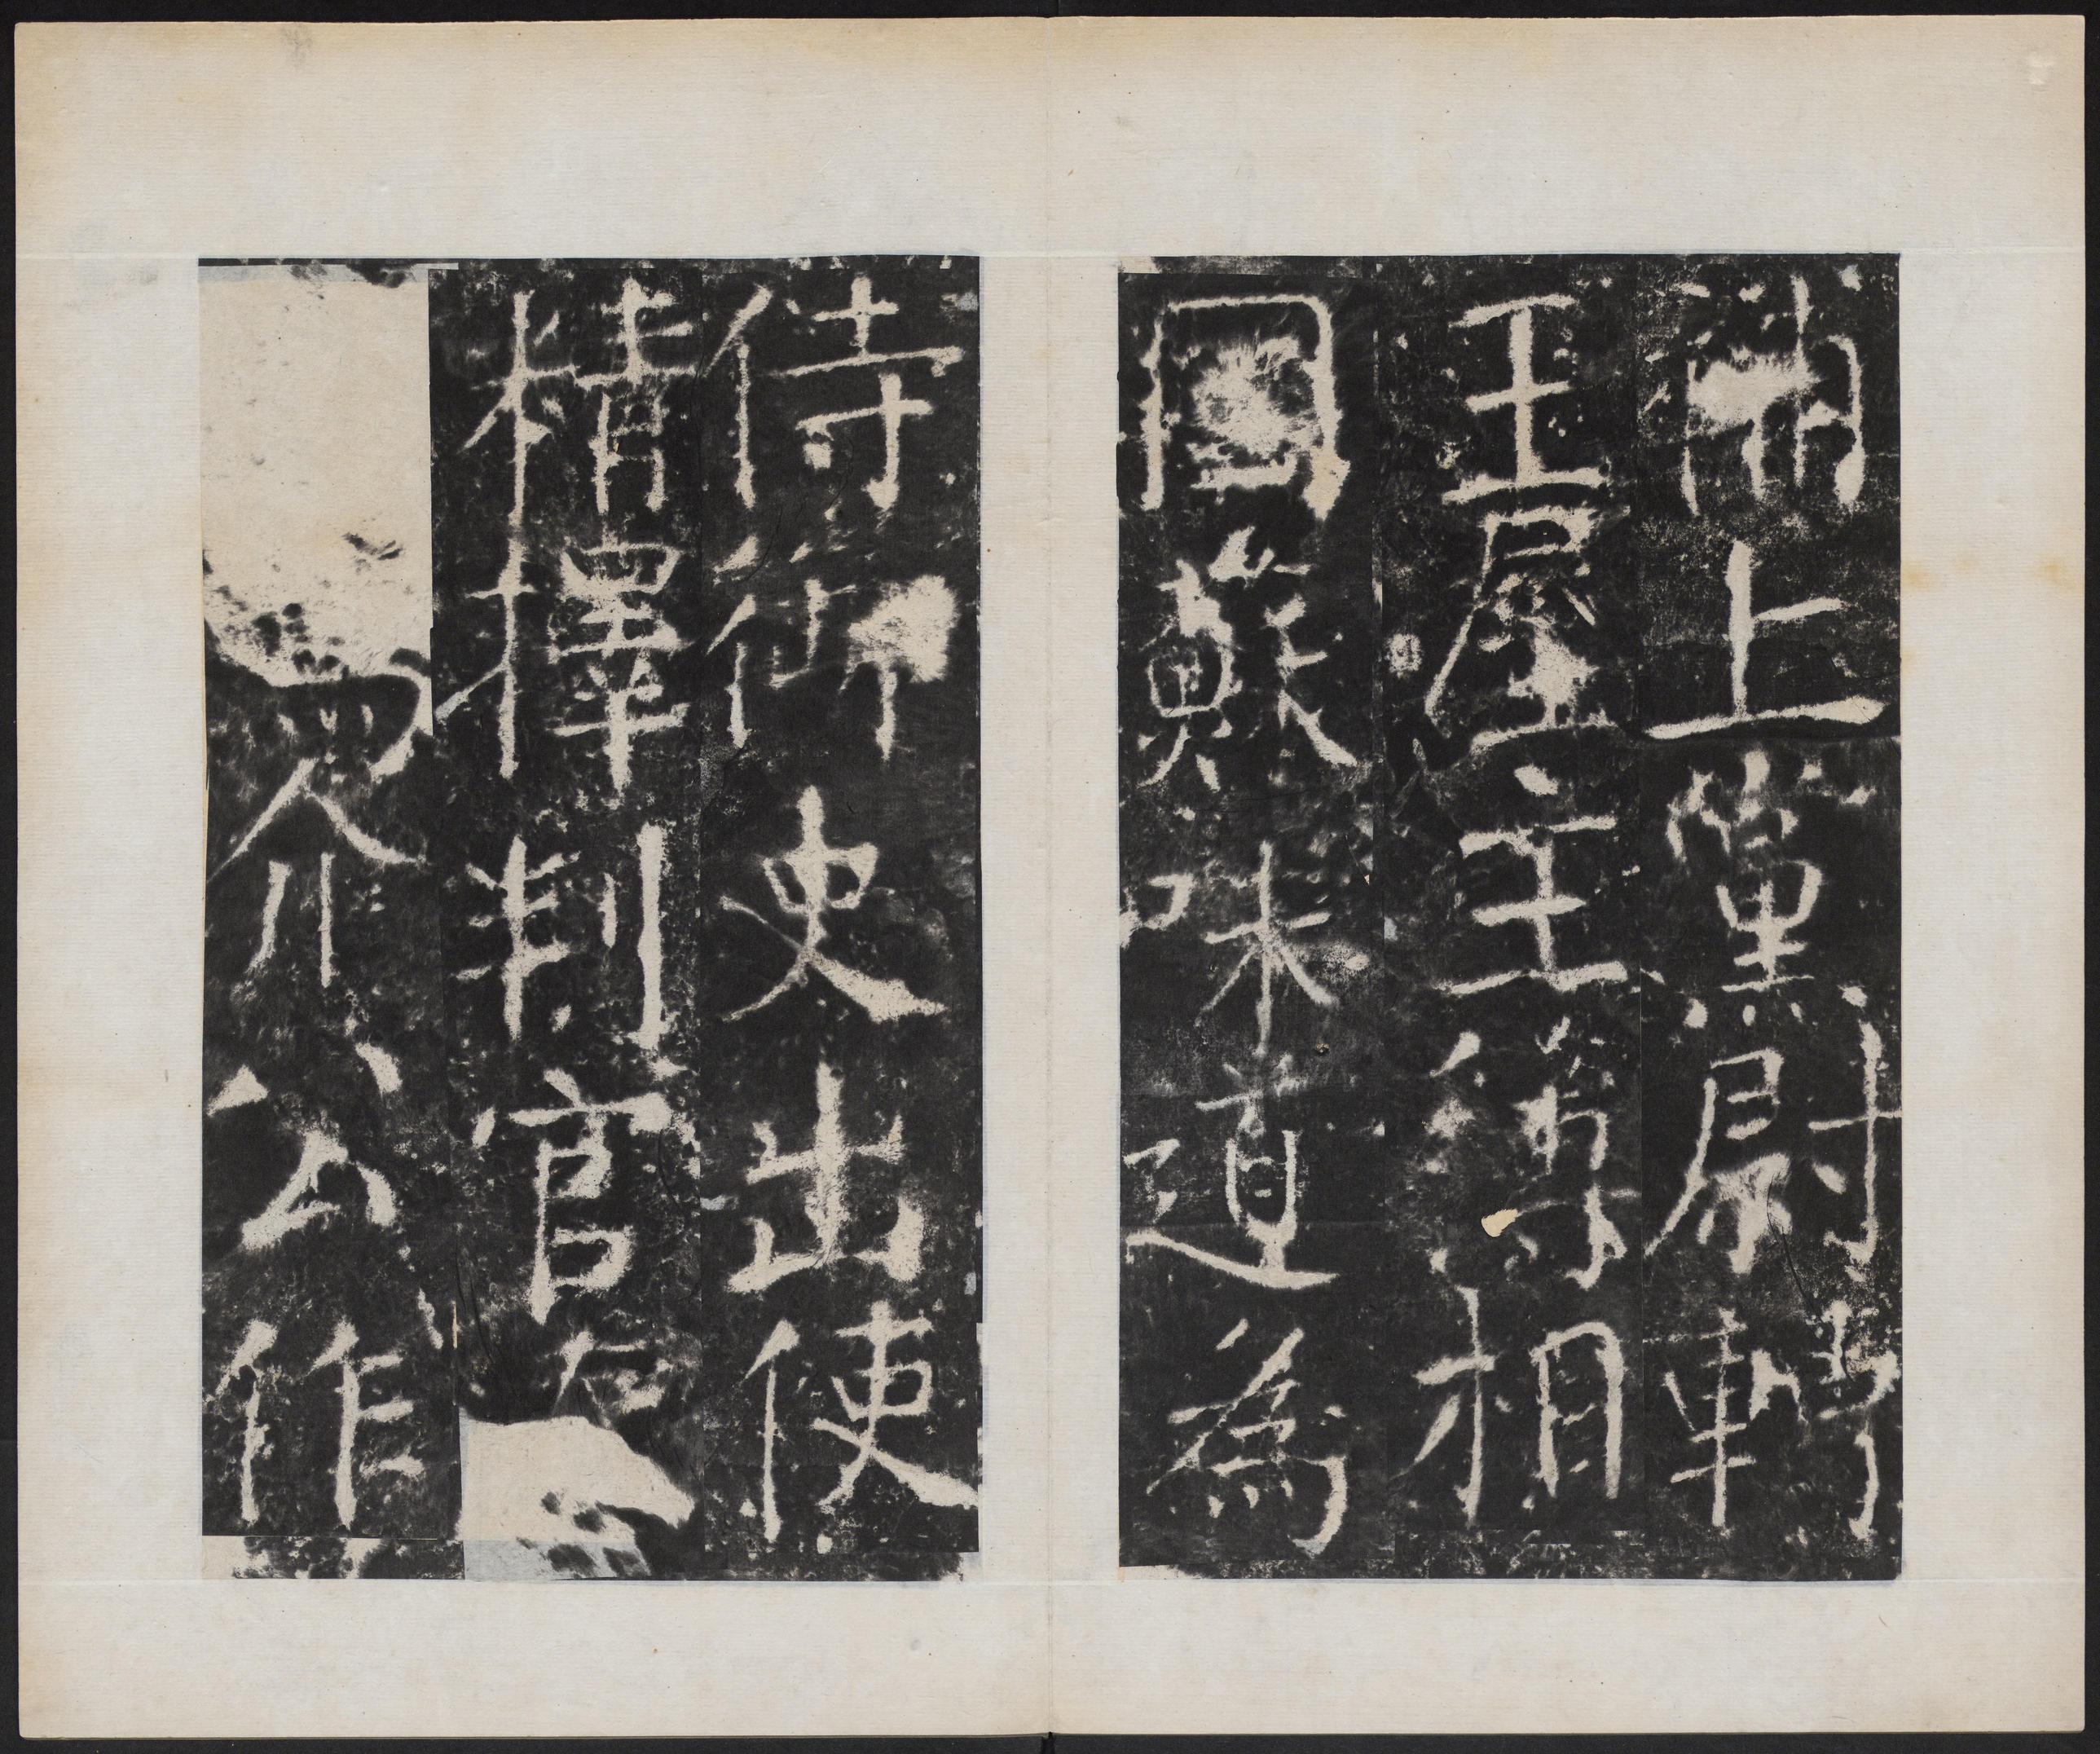 蒲上黨尉轉
王屋主簿相
國蘇味道為
侍御史出使
精擇判官
奏公作